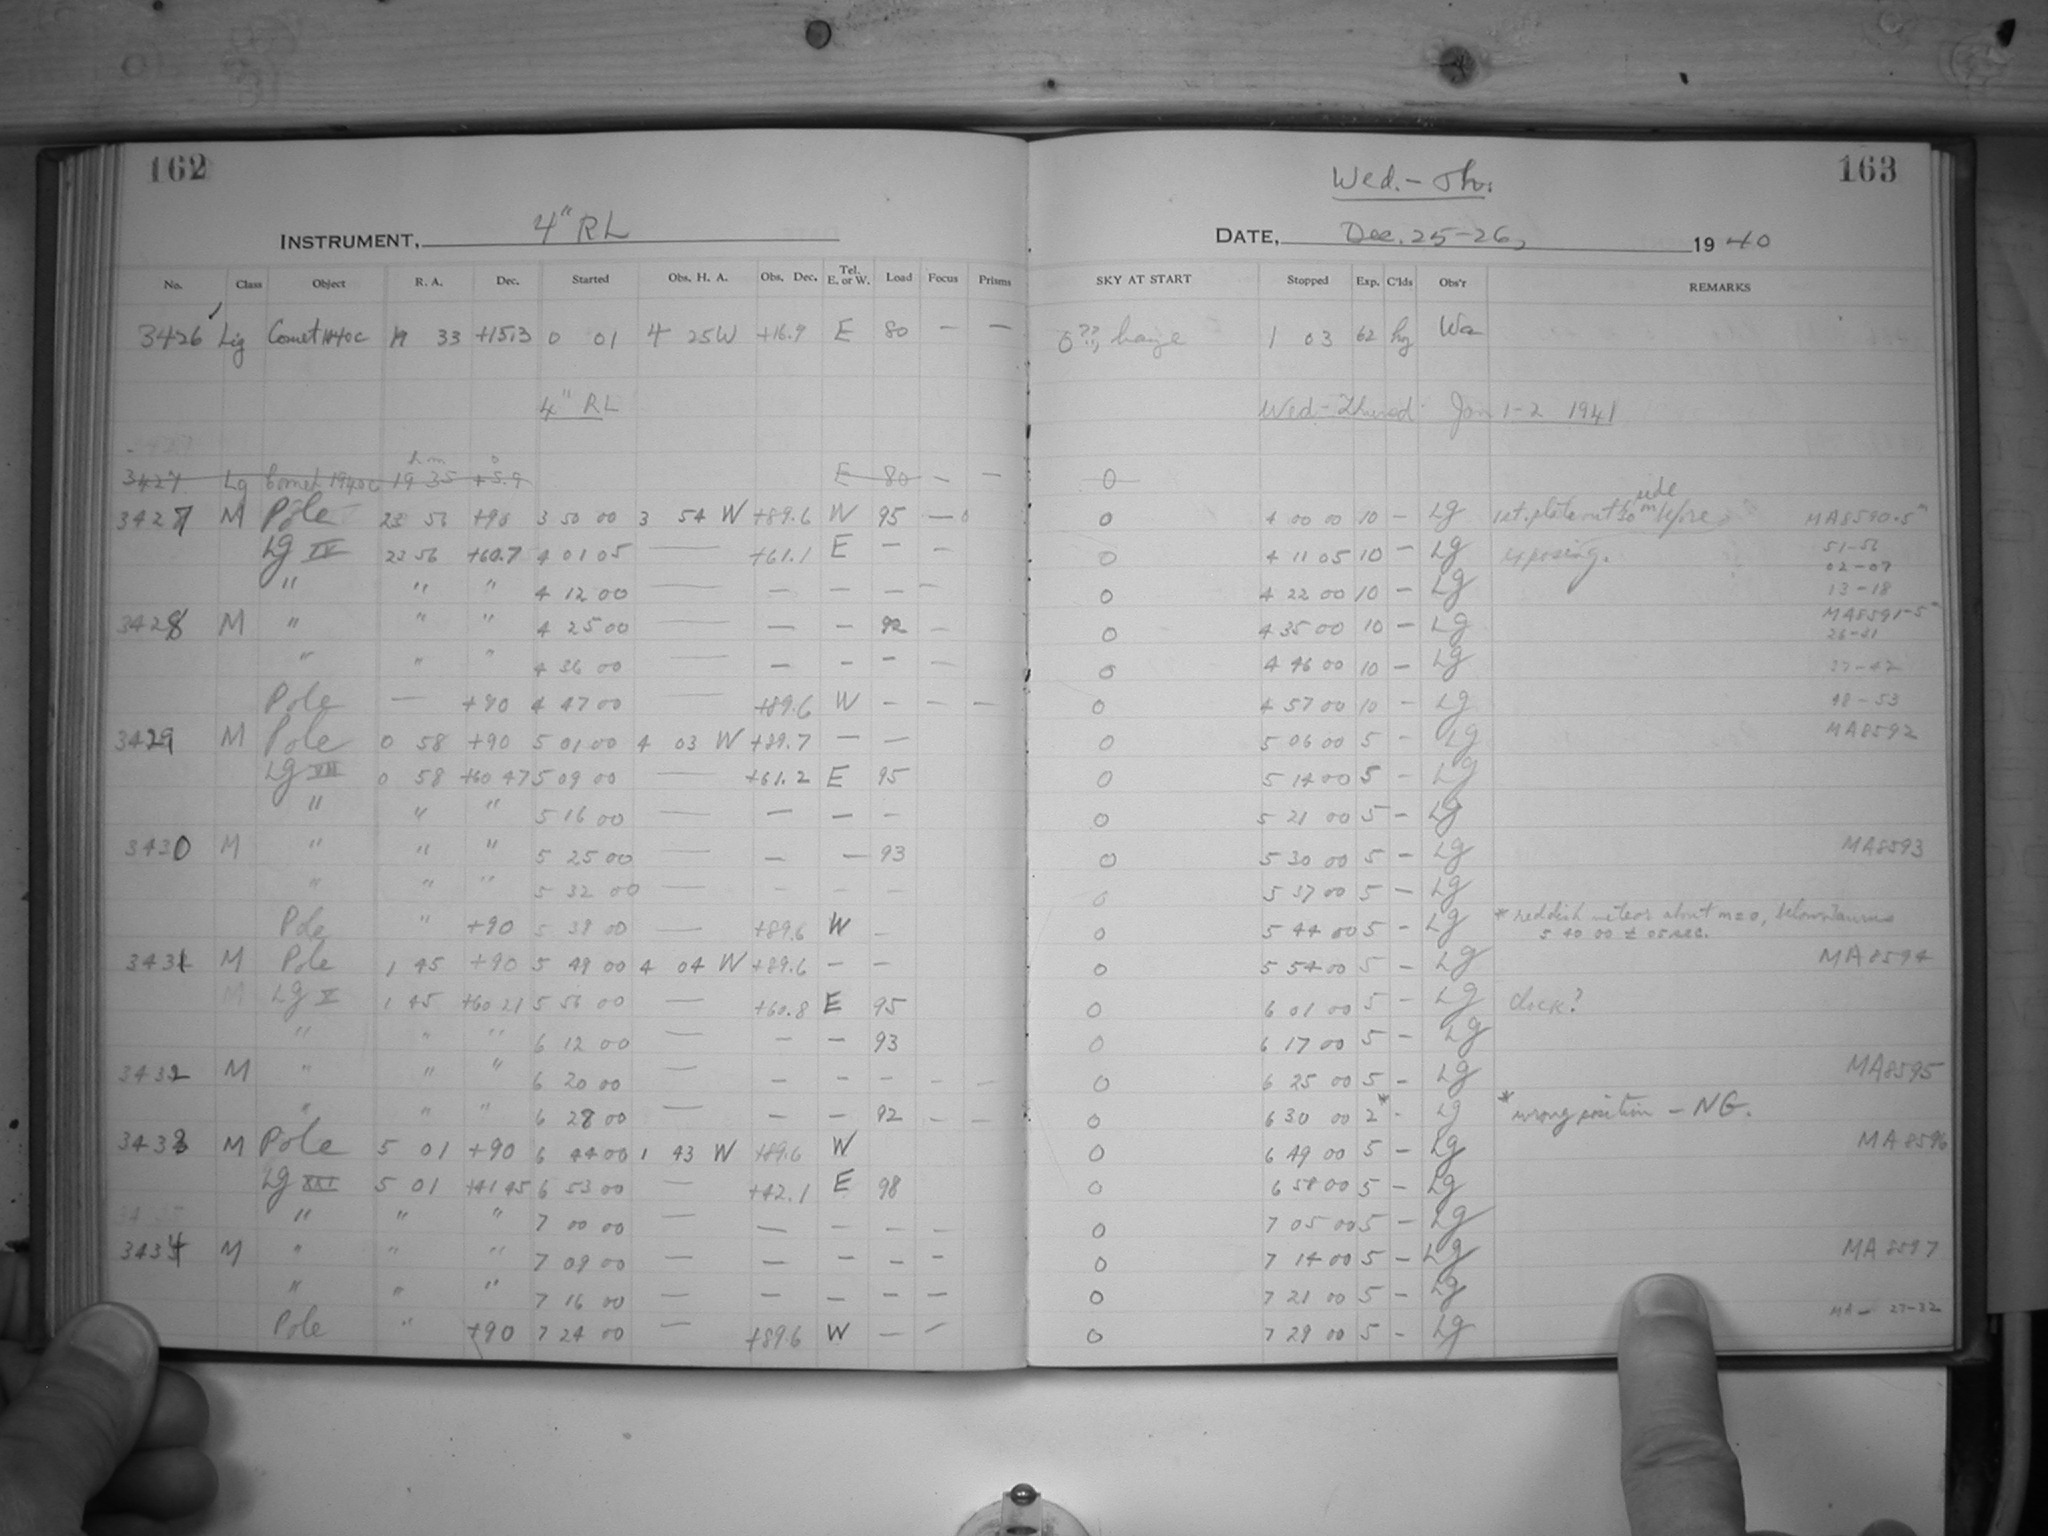 162
163
Wed. - Thu.
INSTRUMENT, 4" RL
DATE, Dec. 25-26, 1940
No. Class Object R. A. Dec. Started Obs. H. A. Obs. Dec. Tel. E. or W. Load Focus Prisms SKY AT START Stopped Exp. C'lds Obs'r REMARKS
3426 Lig Comet 1940c 19 33 +15.3 0 01 4 25W +16.9 E 80 — — 0??, 1 03 62 Wa
4" RL Wed - Jan 1-2 1941
h m °
3427 Lg Comet 1940c 19 35 +5.9 E 80 - — 0
3427 M Pole 23 56 +90 3 50 00 3 54 W +89.6 W 95 — 0 4 00 00 10 - Lg 1st. plate outside 30m before MA8590-5"
Lg IV 23 56 +60.7 4 01 05 — +61.1 E — - 0 4 11 05 10 - Lg exposing. 51-56
02-07
" " " 4 12 00 — — - - - 0 4 22 00 10 - Lg 13-18
3428 M " " " 4 25 00 — — - 92 - 0 4 35 00 10 - Lg MA8591-5" 26-31
" " " 4 36 00 — — - - - 0 4 46 00 10 - Lg 37-42
Pole — +90 4 47 00 — +89.6 W - - - 0 4 57 00 10 - Lg 48-53
3429 M Pole 0 58 +90 5 01 00 4 03 W +89.7 - - 0 5 06 00 5 - Lg MA8592
Lg VII 0 58 +60 47 5 09 00 — +61.2 E 95 0 5 14 00 5 - Lg
" " " 5 16 00 — — - - 0 5 21 00 5 - Lg
3430 M " " " 5 25 00 — — - 93 0 5 30 00 5 - Lg MA8593
" " " 5 32 00 — - - - 0 5 37 00 5 - Lg
Pole " +90 5 39 00 — +89.6 W - 0 5 44 00 5 - Lg * reddish meteor about m=0, below Taurus
5 40 00 ± 05 sec.
3431 M Pole 1 45 +90 5 49 00 4 04 W +89.6 - - 0 5 54 00 5 - Lg MA8594
M Lg V 1 45 +60 21 5 56 00 — +60.8 E 95 0 6 01 00 5 - Lg clock?
" " " 6 12 00 — - - 93 0 6 17 00 5 - Lg
3432 M " " " 6 20 00 — - - - - - 0 6 25 00 5 - Lg MA8595
" " " 6 28 00 — - - 92 - - 0 6 30 00 2* - Lg * wrong position - NG.
3433 M Pole 5 01 +90 6 44 00 1 43 W +89.6 W 0 6 49 00 5 - Lg MA8596
Lg XII 5 01 +41 45 6 53 00 — +42.1 E 98 0 6 58 00 5 - Lg
" " " 7 00 00 — - - - - 0 7 05 00 5 - Lg
3434 M " " " 7 09 00 — - - - - 0 7 14 00 5 - Lg MA 8597
" " " 7 16 00 — - - - - 0 7 21 00 5 - Lg
Pole " +90 7 24 00 — +89.6 W - - 0 7 29 00 5 - Lg MA - 27-32